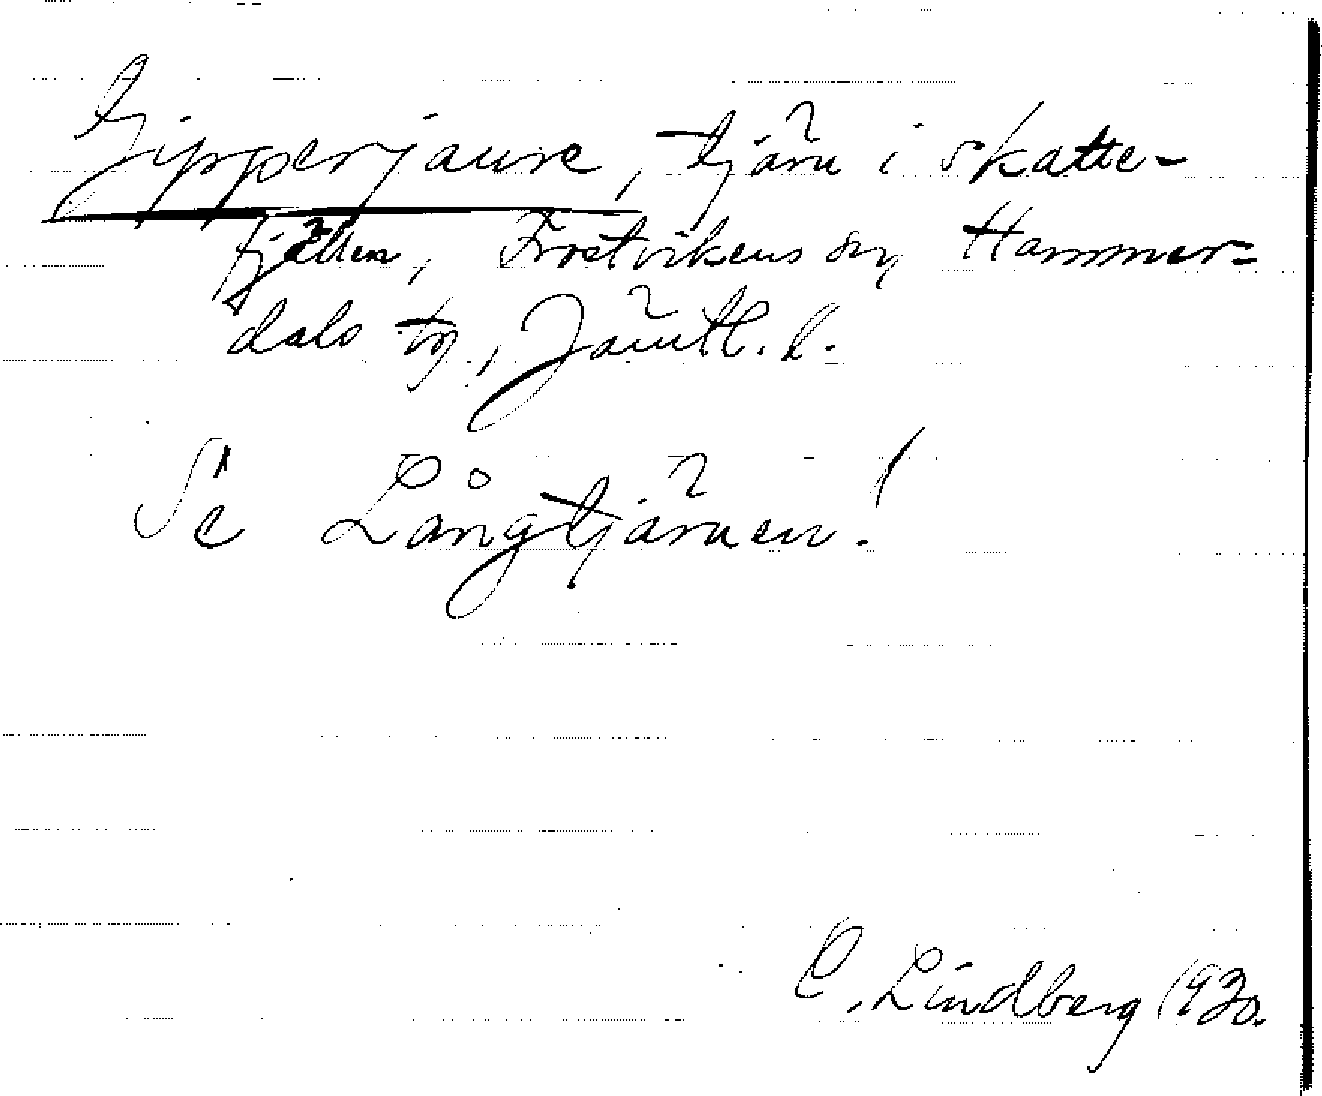 Gipperjaure, tjärn i skatte-
fjällen, Frostvikens sn, Hammer-
dals tg, Jämtl. l.
Se Långtjärnen!
C. Lindberg 1930.